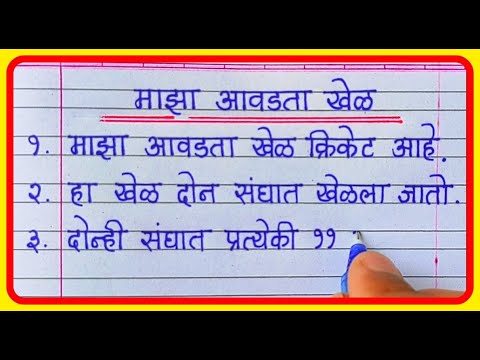 माझा आवडता खेळ
१. माझा आवडता खेळ क्रिकेट आहे.
२. हा खेळ दोन संघात खेळला जातो.
३. दोन्ही संघात प्रत्येकी ११